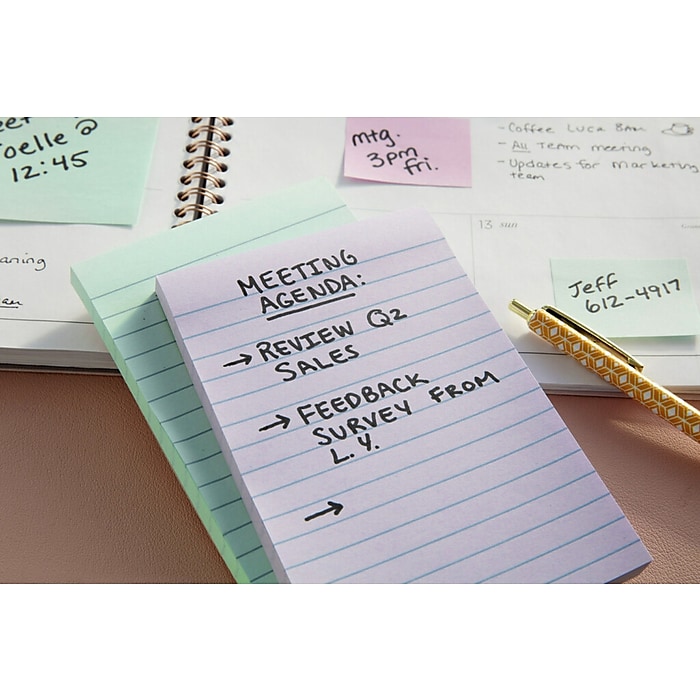 Joelle @
12:45
mtg.
3pm
fri.
- Coffee Luca 8am
- All Team meeting
- Updates for marketing
team
13
Jeff
612-4917
MEETING
AGENDA:
→ REVIEW Q2
SALES
→ FEEDBACK
SURVEY FROM
L.Y.
→